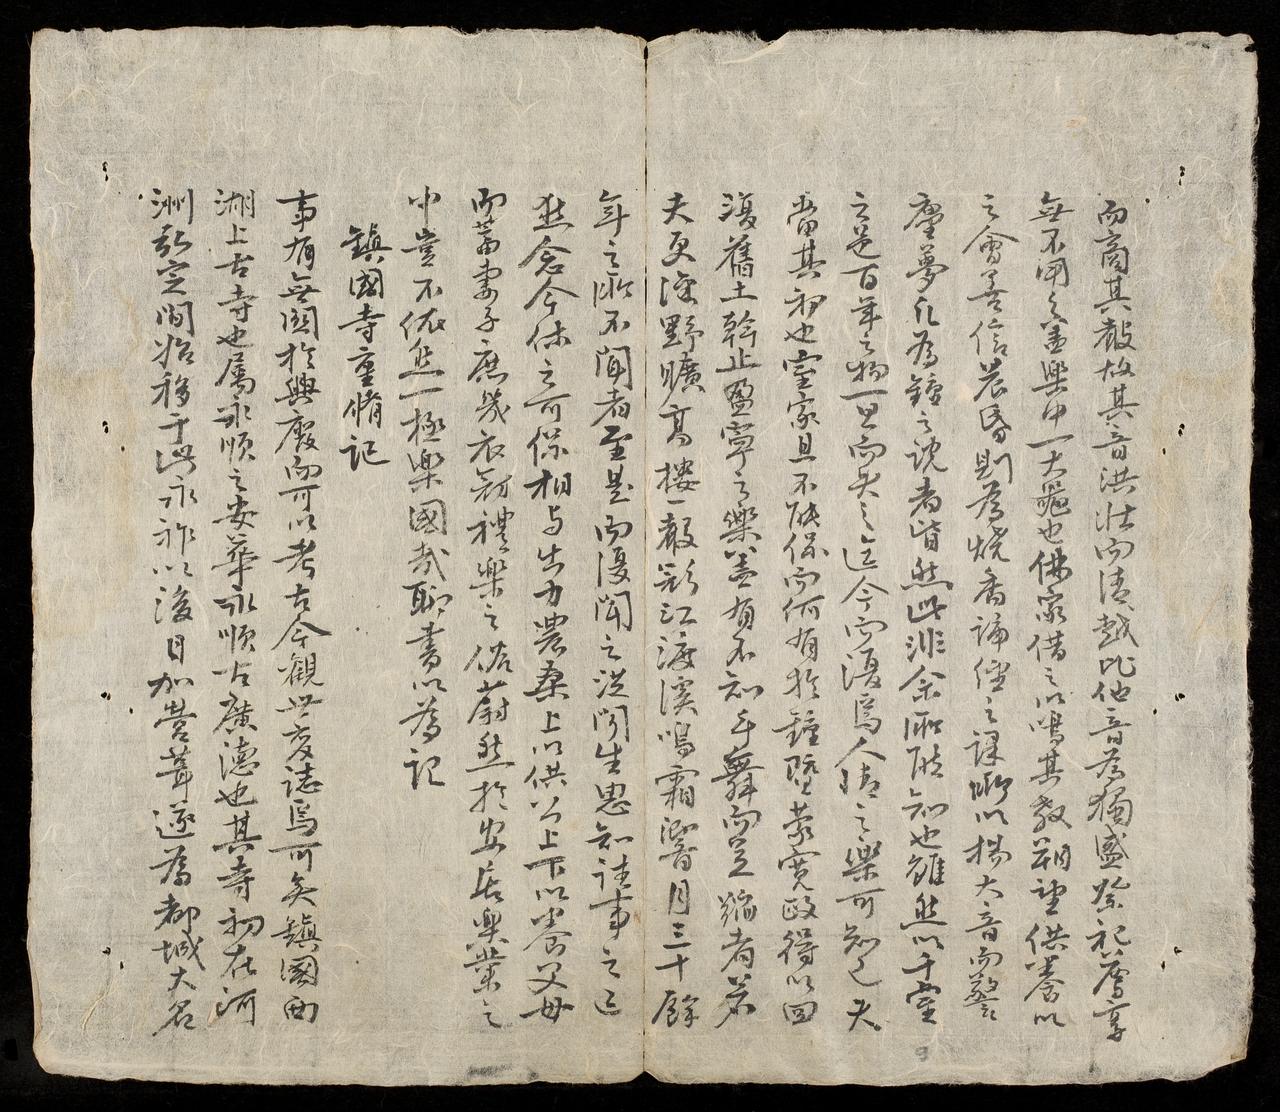 而商其聲故其音洪壯而清越比他音為獨盛祭祀薦享
無不用之盖樂中一大器也佛家借之以鳴其教朔望供養以
之會善信晨昏則為燒香誦經之課擲以揚大音而警
塵夢凡為鐘之說者皆然此非余所能知也雖然以千室
之邑百年之物一旦而失之迄今而復焉人情之樂可知已夫
當其初也室家且不能保而何有於鐘既蒙寬政得以回
復舊土幹止盈寧之樂盖有不知手舞而足蹈者若
夫更深野曠高樓一聲彩江渡溪鳴霜響月三十餘
年之所不聞者至是而復聞之洪聞生思知往事之已
愁念今休之可保相与出力農桑上以供公上下以養父母
而蓄妻子庶幾衣冠禮樂之俗蔚然於安居樂業之
中豈不依然一極樂國哉聊書以為記
鎮國寺重脩記
事有無関於興廢而可以考古今觀世變誌焉可矣鎮國西
湖上古寺也屬永順之安華永順古廣德也其寺初在河
洲弘定間始移于此永祚以後日加營葺遂為都城大名